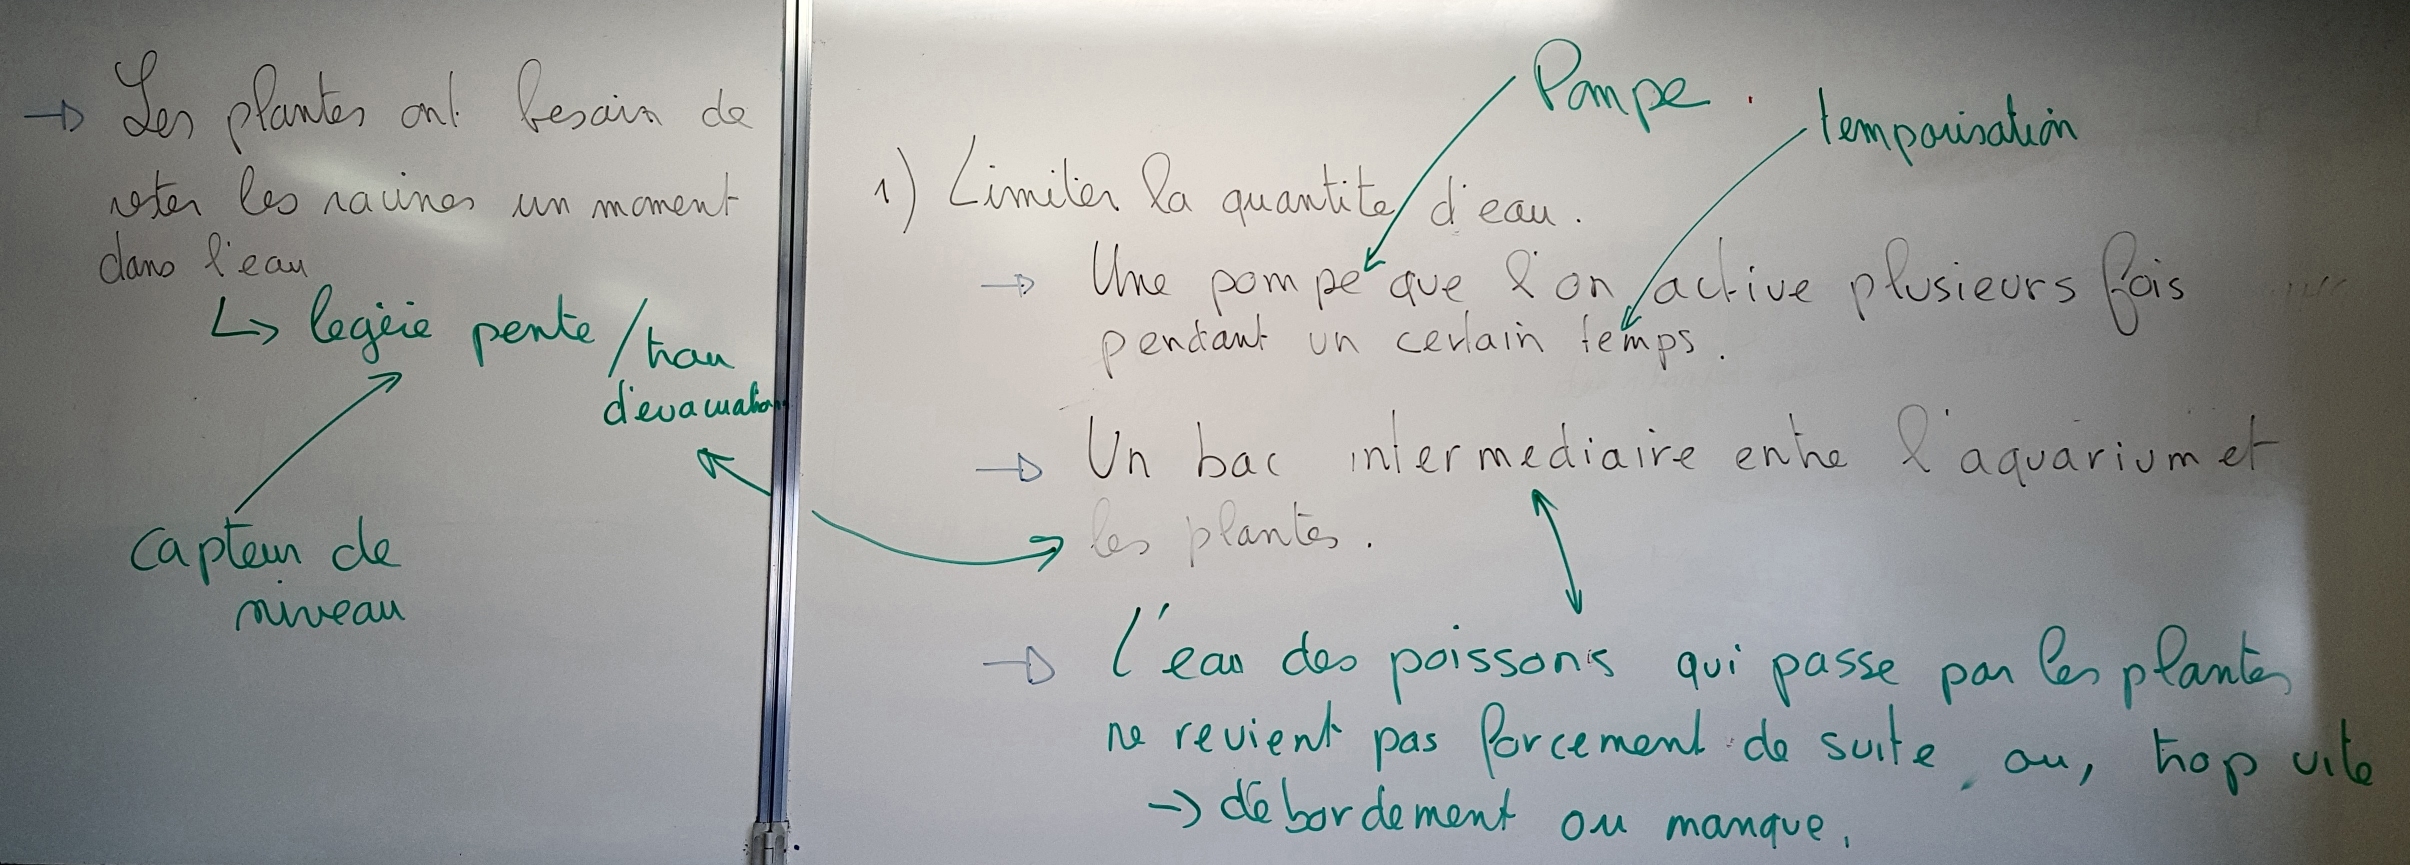 → Les plantes ont besoin de
rester les racines un moment
dans l'eau
↳ legère pente / trou
d'evacuation
capteur de
niveau
Pompe.
temporisation
1) Limiter la quantite d'eau.
→ Une pompe que l'on active plusieurs fois
pendant un certain temps.
→ Un bac intermediaire entre l'aquarium et
les plantes.
→ L'eau des poissons qui passe par les plantes
ne revient pas forcement de suite, ou, trop vite
→ débordement ou manque.